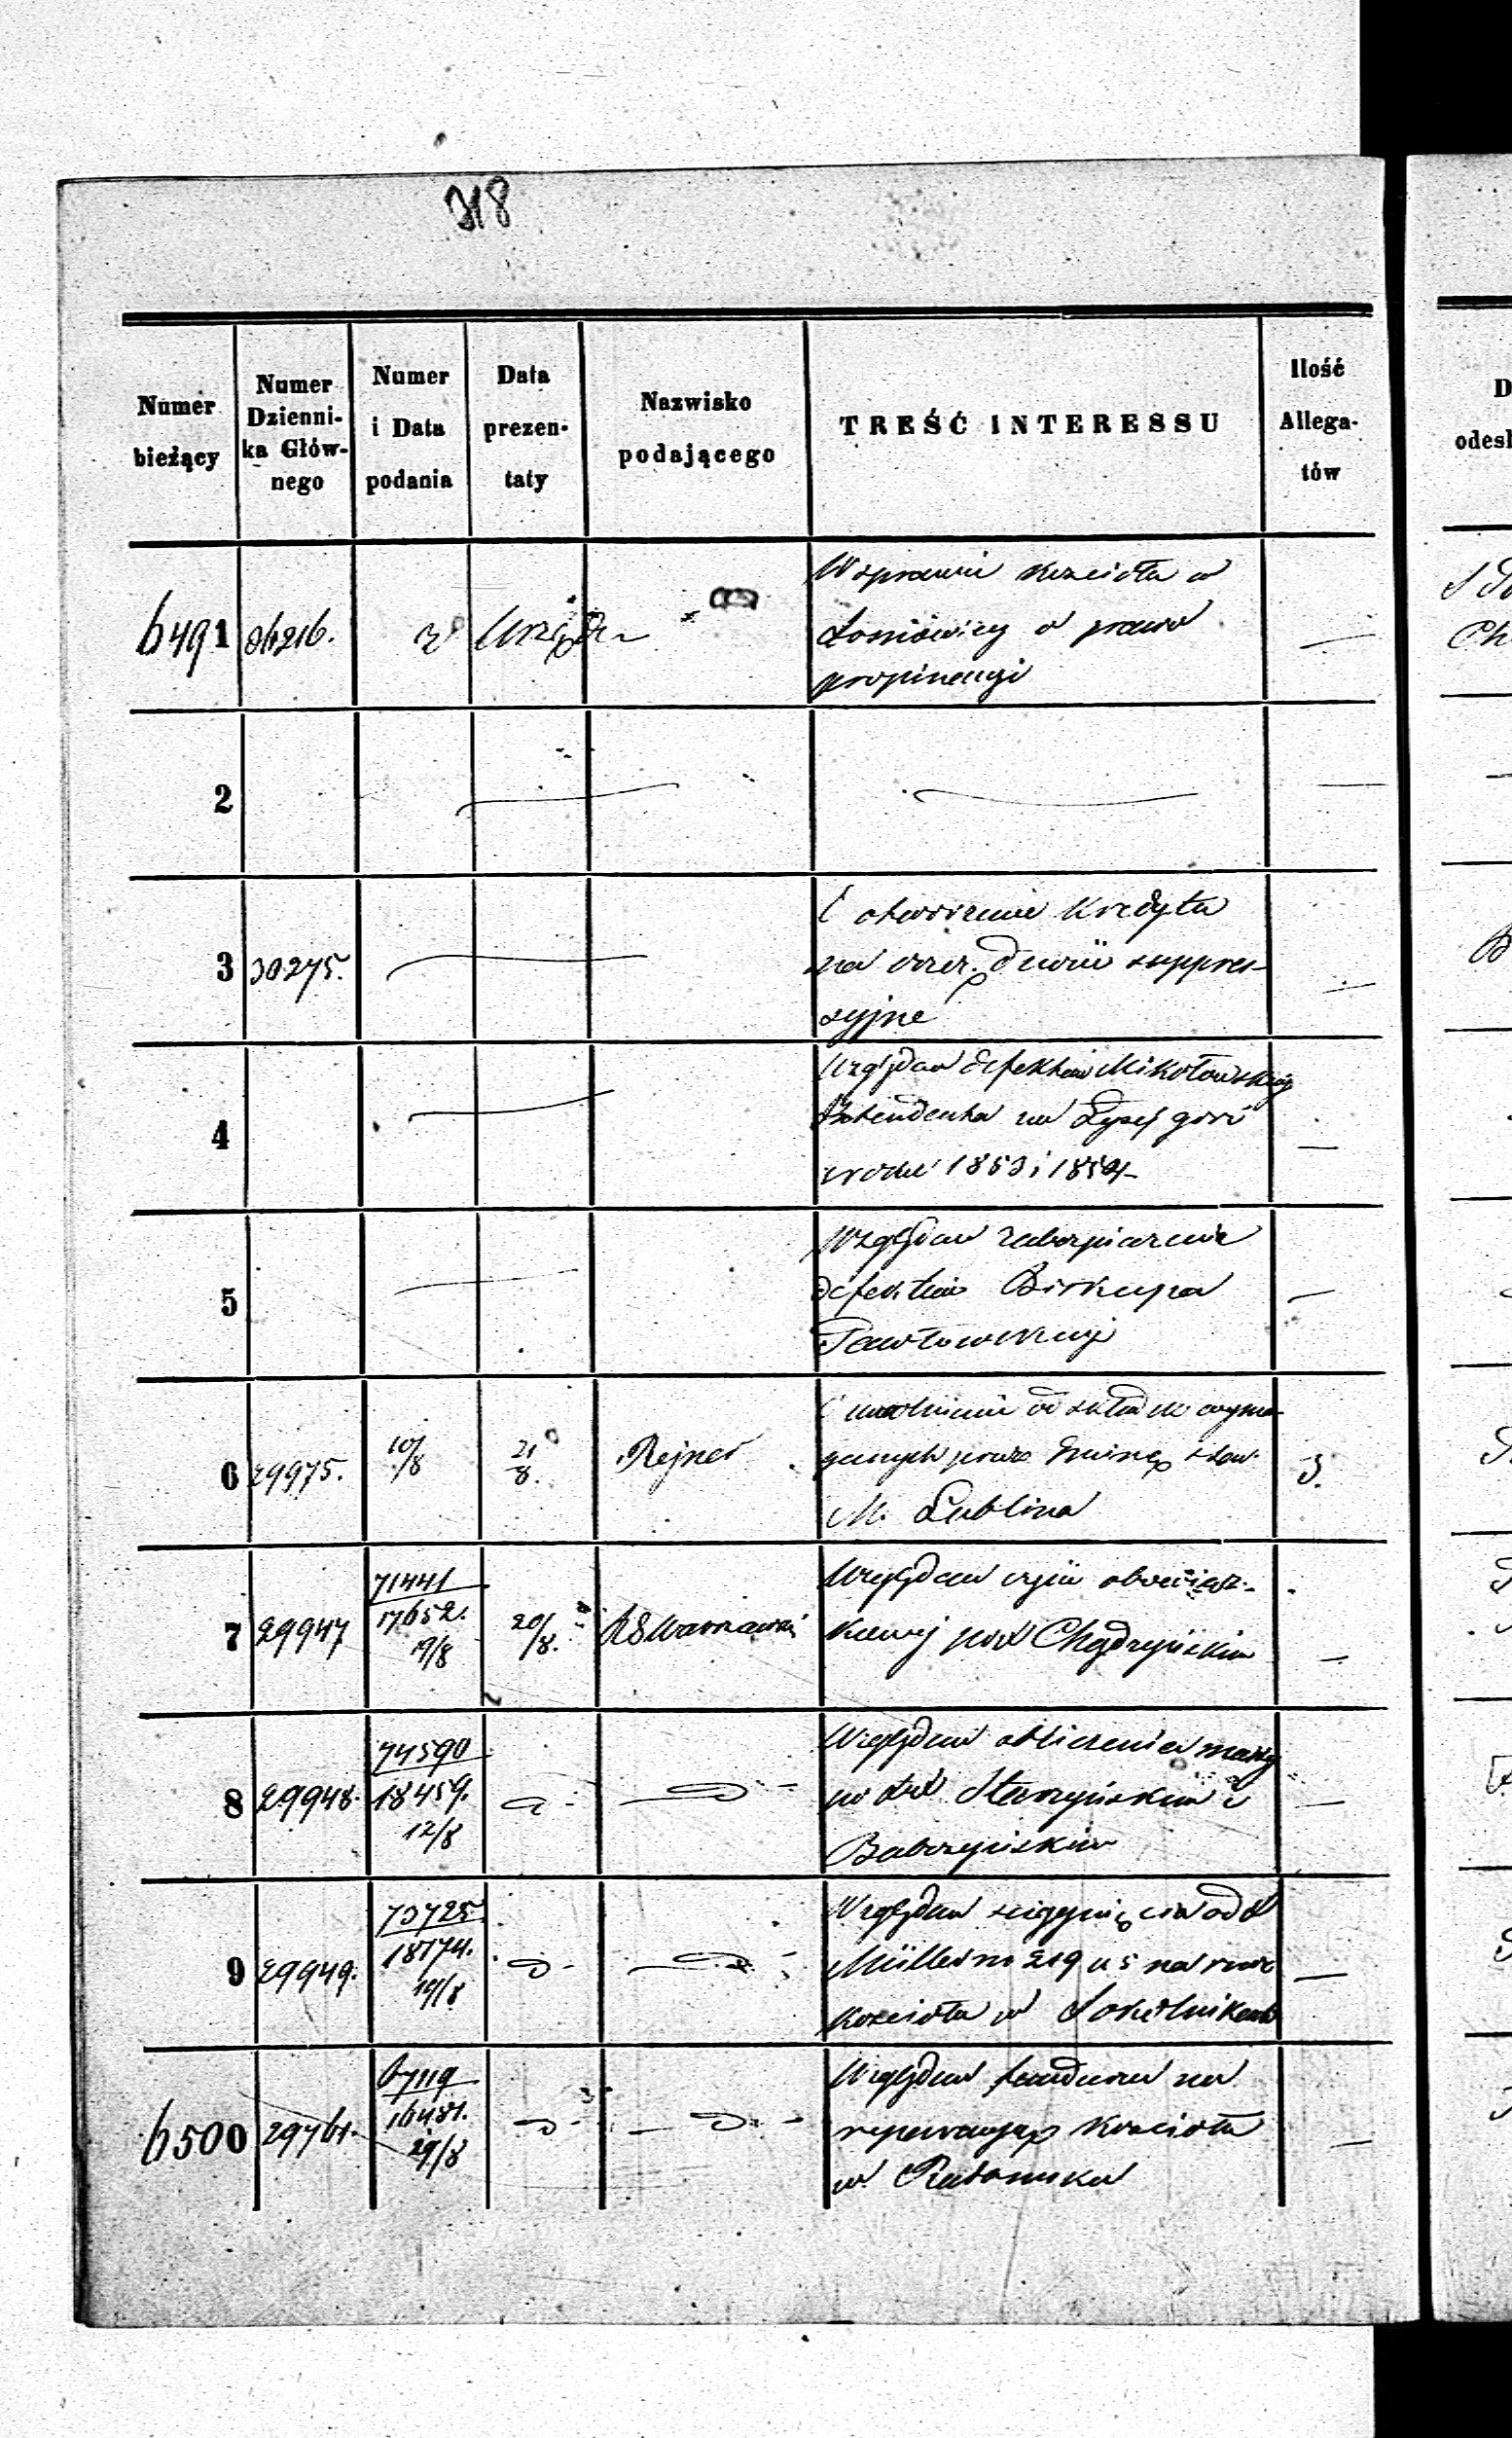 318
Numer bieżący
Numer Dzienni-ka Głów-nego
Numer i Data podania
Data prezen-taty
Nazwisko podającego
TREŚĆ INTERESSU
Ilość Allega-tów
6491
z Urzędu
W sprawie kościoła w
o prawo
propinacyi
—
2
—
—
—
3
30275.
—
O otworzenie Kredytu
na dwie suppres-
syjne
—
4
—
Względem defektów Mikołowskiego
Intendenta na Łysej górze
w roku 1853 i 1854
—
5
—
Względem zabezpieczenia
defektów Biskupa
Pawłowskiego
—
6
29975.
10/8
21/8.
Rejner
O uwolnienie od składek wyma-
ganych przez Gminę star.
M. Lublina
3.
7
29947
71441
17652.
19/8
20/8.
RG Warszawski
Względem obowiąz-
kowej pod Chądzyńskim
—
8
29948.
74590
18459.
12/8
Względem obliczenia massy
po Starzyńskim i
Babczyńskim
—
9
29949.
73725
18174.
19/8
Względem ściągnięcia od
Müllera rs 219 k 5 na rzecz
kościoła w Sokolnikach
—
6500
29761.
67119
16481.
29/8
Względem funduszu na
reperacyą Kościoła
w
—
D
odesł